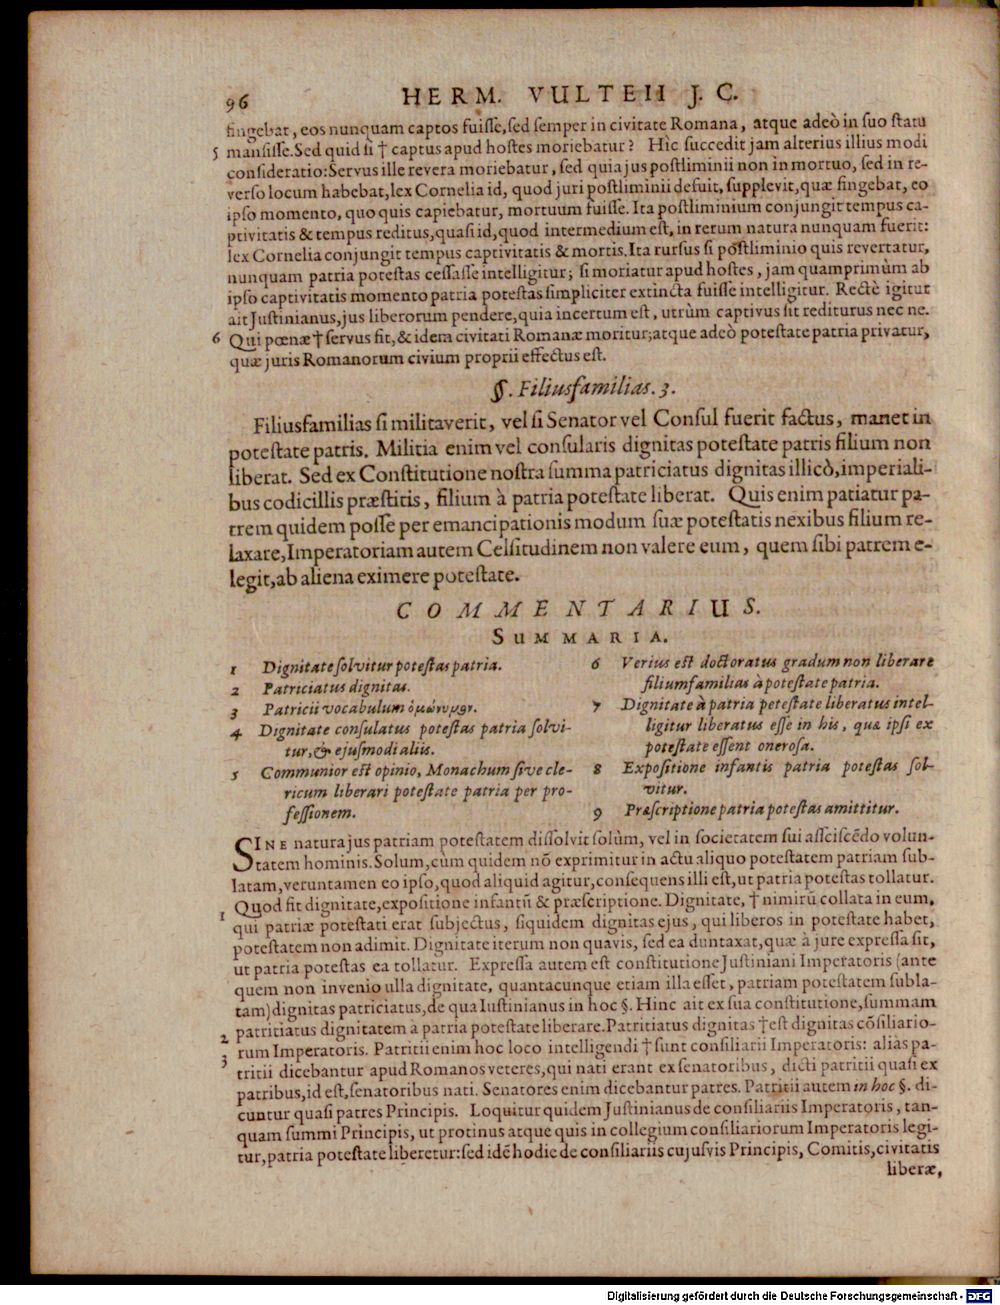 96 HERM. VULTEII J. C.
fingebat, eos nunquam captos fuiſſe, ſed ſemper in civitate Romana, atque adeò in ſuo ſtatu
5 manſiſſe. Sed quid ſi † captus apud hoſtes moriebatur? Hîc ſuccedit jam alterius illius modi
conſideratio: Servus ille revera moriebatur, ſed quia jus poſtliminii non in mortuo, ſed in re-
verſo locum habebat, lex Cornelia id, quod juri poſtliminii defuit, ſupplevit, quæ fingebat, eo
ipſo momento, quo quis capiebatur, mortuum fuiſſe. Ita poſtliminium conjungit tempus ca-
ptivitatis & tempus reditus, quaſi id, quod intermedium eſt, in rerum natura nunquam fuerit:
lex Cornelia conjungit tempus captivitatis & mortis. Ita rurſus ſi poſtliminio quis revertatur,
nunquam patria poteſtas ceſſaſſe intelligitur; ſi moriatur apud hoſtes, jam quamprimùm ab
ipſo captivitatis momento patria poteſtas ſimpliciter extincta fuiſſe intelligitur. Rectè igitur
ait Juſtinianus, jus liberorum pendere, quia incertum eſt, utrùm captivus ſit rediturus nec ne.
6 Qui pœnæ † ſervus fit, & idem civitati Romanæ moritur; atque adeò poteſtate patria privatur,
quæ juris Romanorum civium proprii effectus eſt.
§. Filiusfamilias. 3.
Filiusfamilias ſi militaverit, vel ſi Senator vel Conſul fuerit factus, manet in
poteſtate patris. Militia enim vel conſularis dignitas poteſtate patris filium non
liberat. Sed ex Conſtitutione noſtra ſumma patriciatus dignitas illicò, imperiali-
bus codicillis præſtitis, filium à patria poteſtate liberat. Quis enim patiatur pa-
trem quidem poſſe per emancipationis modum ſuæ poteſtatis nexibus filium re-
laxare, Imperatoriam autem Celſitudinem non valere eum, quem ſibi patrem e-
legit, ab aliena eximere poteſtate.
COMMENTARIUS.
SUMMARIA.
1 Dignitate ſolvitur poteſtas patria.
2 Patriciatus dignitas.
3 Patricii vocabulum ὁμώνυμον.
4 Dignitate conſulatus poteſtas patria ſolvi-
tur, & ejuſmodi aliis.
5 Communior eſt opinio, Monachum ſive cle-
ricum liberari poteſtate patria per pro-
feſſionem.
6 Verius eſt doctoratus gradum non liberare
filiumfamilias à poteſtate patria.
7 Dignitate à patria peteſtate liberatus intel-
ligitur liberatus eſſe in his, quæ ipſi ex
poteſtate eſſent oneroſa.
8 Expoſitione infantis patria poteſtas ſol-
vitur.
9 Præſcriptione patria poteſtas amittitur.
SINE natura jus patriam poteſtatem diſſolvit ſolùm, vel in ſocietatem ſui aſſciſcẽdo volun-
tatem hominis. Solum, cùm quidem nõ exprimitur in actu aliquo poteſtatem patriam ſub-
latam, veruntamen eo ipſo, quod aliquid agitur, conſequens illi eſt, ut patria poteſtas tollatur.
Quod fit dignitate, expoſitione infantũ & præſcriptione. Dignitate, † nimirũ collata in eum,
1 qui patriæ poteſtati erat ſubjectus, ſiquidem dignitas ejus, qui liberos in poteſtate habet,
poteſtatem non adimit. Dignitate iterum non quavis, ſed ea duntaxat, quæ à jure expreſſa ſit,
ut patria poteſtas ea tollatur. Expreſſa autem eſt conſtitutione Juſtiniani Imperatoris (ante
quem non invenio ulla dignitate, quantacunque etiam illa eſſet, patriam poteſtatem ſubla-
tam) dignitas patriciatus, de qua Iuſtinianus in hoc §. Hinc ait ex ſua conſtitutione, ſummam
patritiatus dignitatem à patria poteſtate liberare. Patritiatus dignitas † eſt dignitas cõſiliario-
2 rum Imperatoris. Patritii enim hoc loco intelligendi † ſunt conſiliarii Imperatoris: alias pa-
3 tritii dicebantur apud Romanos veteres, qui nati erant ex ſenatoribus, dicti patritii quaſi ex
patribus, id eſt, ſenatoribus nati. Senatores enim dicebantur patres. Patritii autem in hoc §. di-
cuntur quaſi patres Principis. Loquitur quidem Juſtinianus de conſiliariis Imperatoris, tan-
quam ſummi Principis, ut protinus atque quis in collegium conſiliariorum Imperatoris legi-
tur, patria poteſtate liberetur: ſed idẽ hodie de conſiliariis cujuſvis Principis, Comitis, civitatis
liberæ,
Digitalisierung gefördert durch die Deutsche Forschungsgemeinschaft - DFG